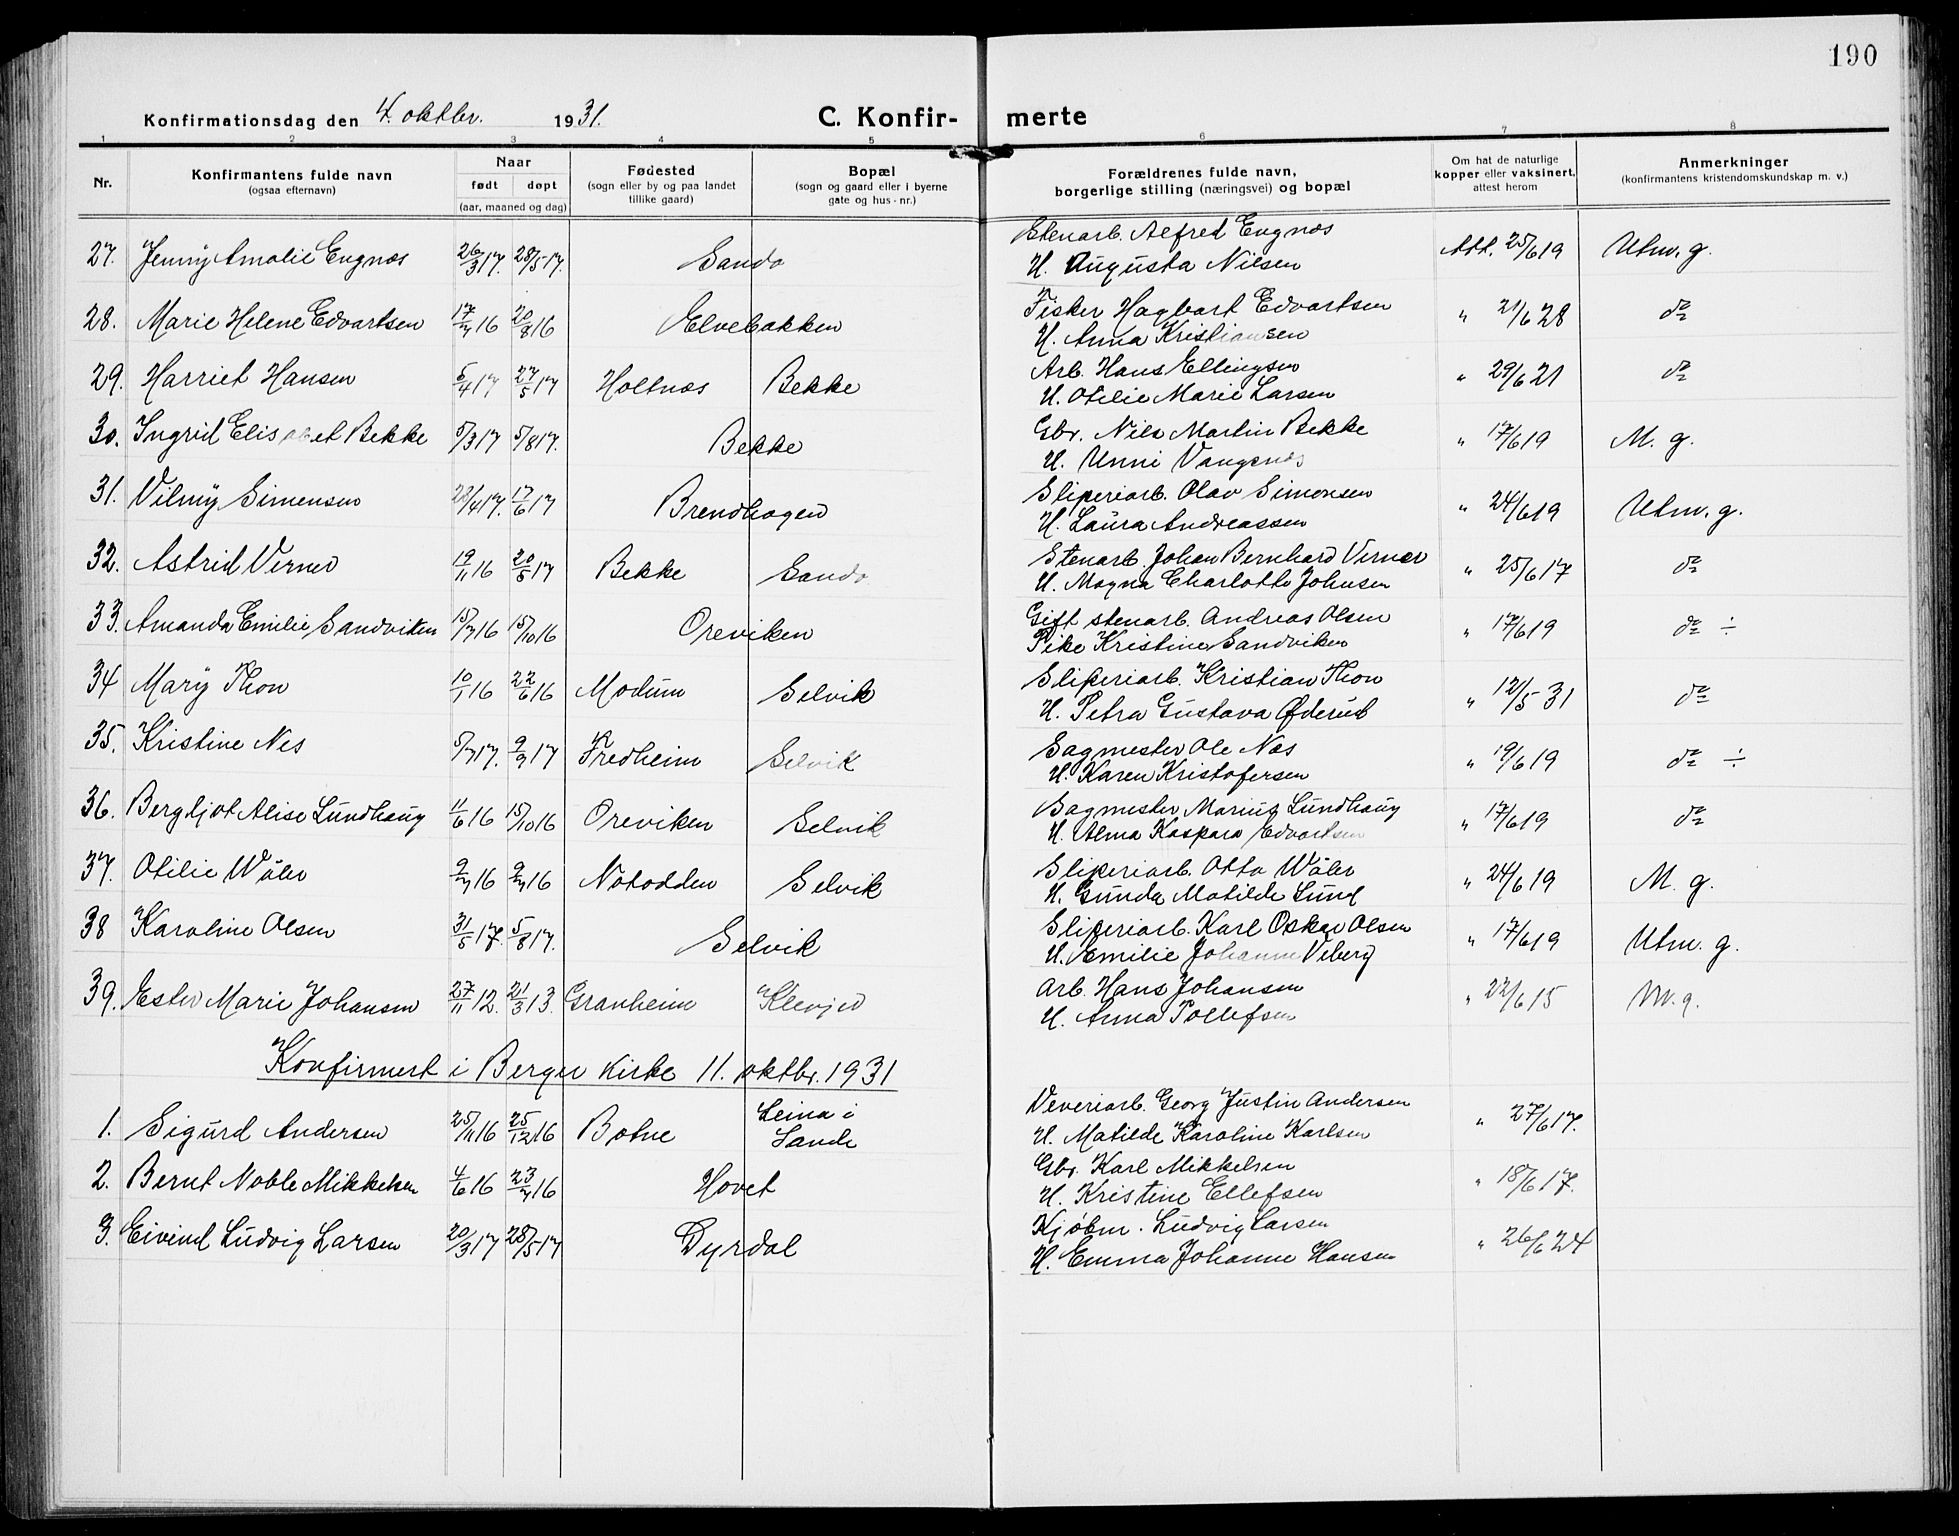 190
Konfirmationsdag den 4. oktbr. 1931.
C. Konfir- merte
1 2 3 4 5 6 7 8
Nr.
Konfirmantens fulde navn
(ogsaa efternavn)
Naar
født døpt
(aar, maaned og dag)
Fødested
(sogn eller by og paa landet
tillike gaard)
Bopæl
(sogn og gaard eller i byerne
gate og hus-nr.)
Forældrenes fulde navn,
borgerlige stilling (næringsvei) og bopæl
Om hat de naturlige
kopper eller vaksinert,
attest herom
Anmerkninger
(konfirmantens kristendomskundskap m. v.)
27. Jenny Amalie Engnæs 26/3 17. 28/5 17. Sando Stenarb. Alfred Engnæs
H. Augusta Nilsen Att. 25/6 19 Utm. g.
28. Marie Helene Edvartsen 17/7 16 20/8 16 Elvebakken Fisker Hagbart Edvartsen
H. Anna Kristiansen " 21/6 28 do
29. Harriet Hansen 5/4 17 27/5 17 Holtnæs Bekke Arb. Hans Ellingsen
H. Otilie Marie Larsen " 29/6 21 do
30. Ingrid Elisabet Bekke 5/3 17 5/8 17. Bekke Gbr. Nils Martin Bekke
H. Unni Vangsnæs " 17/6 19 M. g.
31. Vilmy Simensen 4 17. 17/6 17 Brendhagen Sliperiarb. Olav Simensen
H. Laura Andreassen " 24/6 19 Utm. g.
32. Astrid Verner 19/11 16 20/5 17 Bekke Sando Stenarb. Johan Bernhard Verner
H. Magna Charlotte Johnsen " 25/6 17 do
33. Amanda Emilie Sandviken 15/7 16 15/10 16 Oreviken Gift stenarb. Andreas Olsen
Pike Kristine Sandviken " 17/6 19 do ÷
34 Mary Thon 10/1 16 22/6 16 Modum Selvik Sliperiarb. Kristian Thon
H. Petra Gustava Øderud " 12/5 31 do
35. Kristine Nes 5/7 17. 9/9 17 Fredheim Selvik Sagmester Ole Næs
H. Karen Kristofersen " 19/6 19 do ÷
36. Bergljot Alise Lundhaug 11/6 16 15/10 16 Oreviken Selvik Sagmester Marius Lundhaug
H. Alma Kaspara Edvartsen " 17/6 19 do
37. Otilie Wåler 9/7 16 9/7 16 Notodden Selvik Sliperiarb. Otto Wåler
H. Gunda Matilde Lund " 24/6 19 M. g.
38 Karoline Olsen 31/5 17. 5/8 17. Selvik Sliperiarb. Karl Oskar Olsen
H. Emilie Johanne Viberg " 17/6 19 Utm. g.
39. Ester Marie Johansen 27/11 12. 21/3 13. Granheim Klevjer Arb. Hans Johansen
H. Anna Tollefsen " 22/6 15 M. g.
Konfirmert i Berger kirke 11. oktbr. 1931
1. Sigurd Andersen 25/11 16 25/12 16 Botne Leina i
Sande Veveriarb. Georg Justin Andersen
H. Matilde Karoline Karlsen " 27/6 17.
2. Bernt Noble Mikkelsen 4/6 16 23/7 16 Hovet Gbr. Karl Mikkelsen
H. Kristine Ellefsen " 18/6 17.
3. Eivind Ludvig Larsen 20/3 17 28/5 17 Dyrdal Kjøbm. Ludvig Larsen
H. Emma Johanne Hansen " 26/6 24